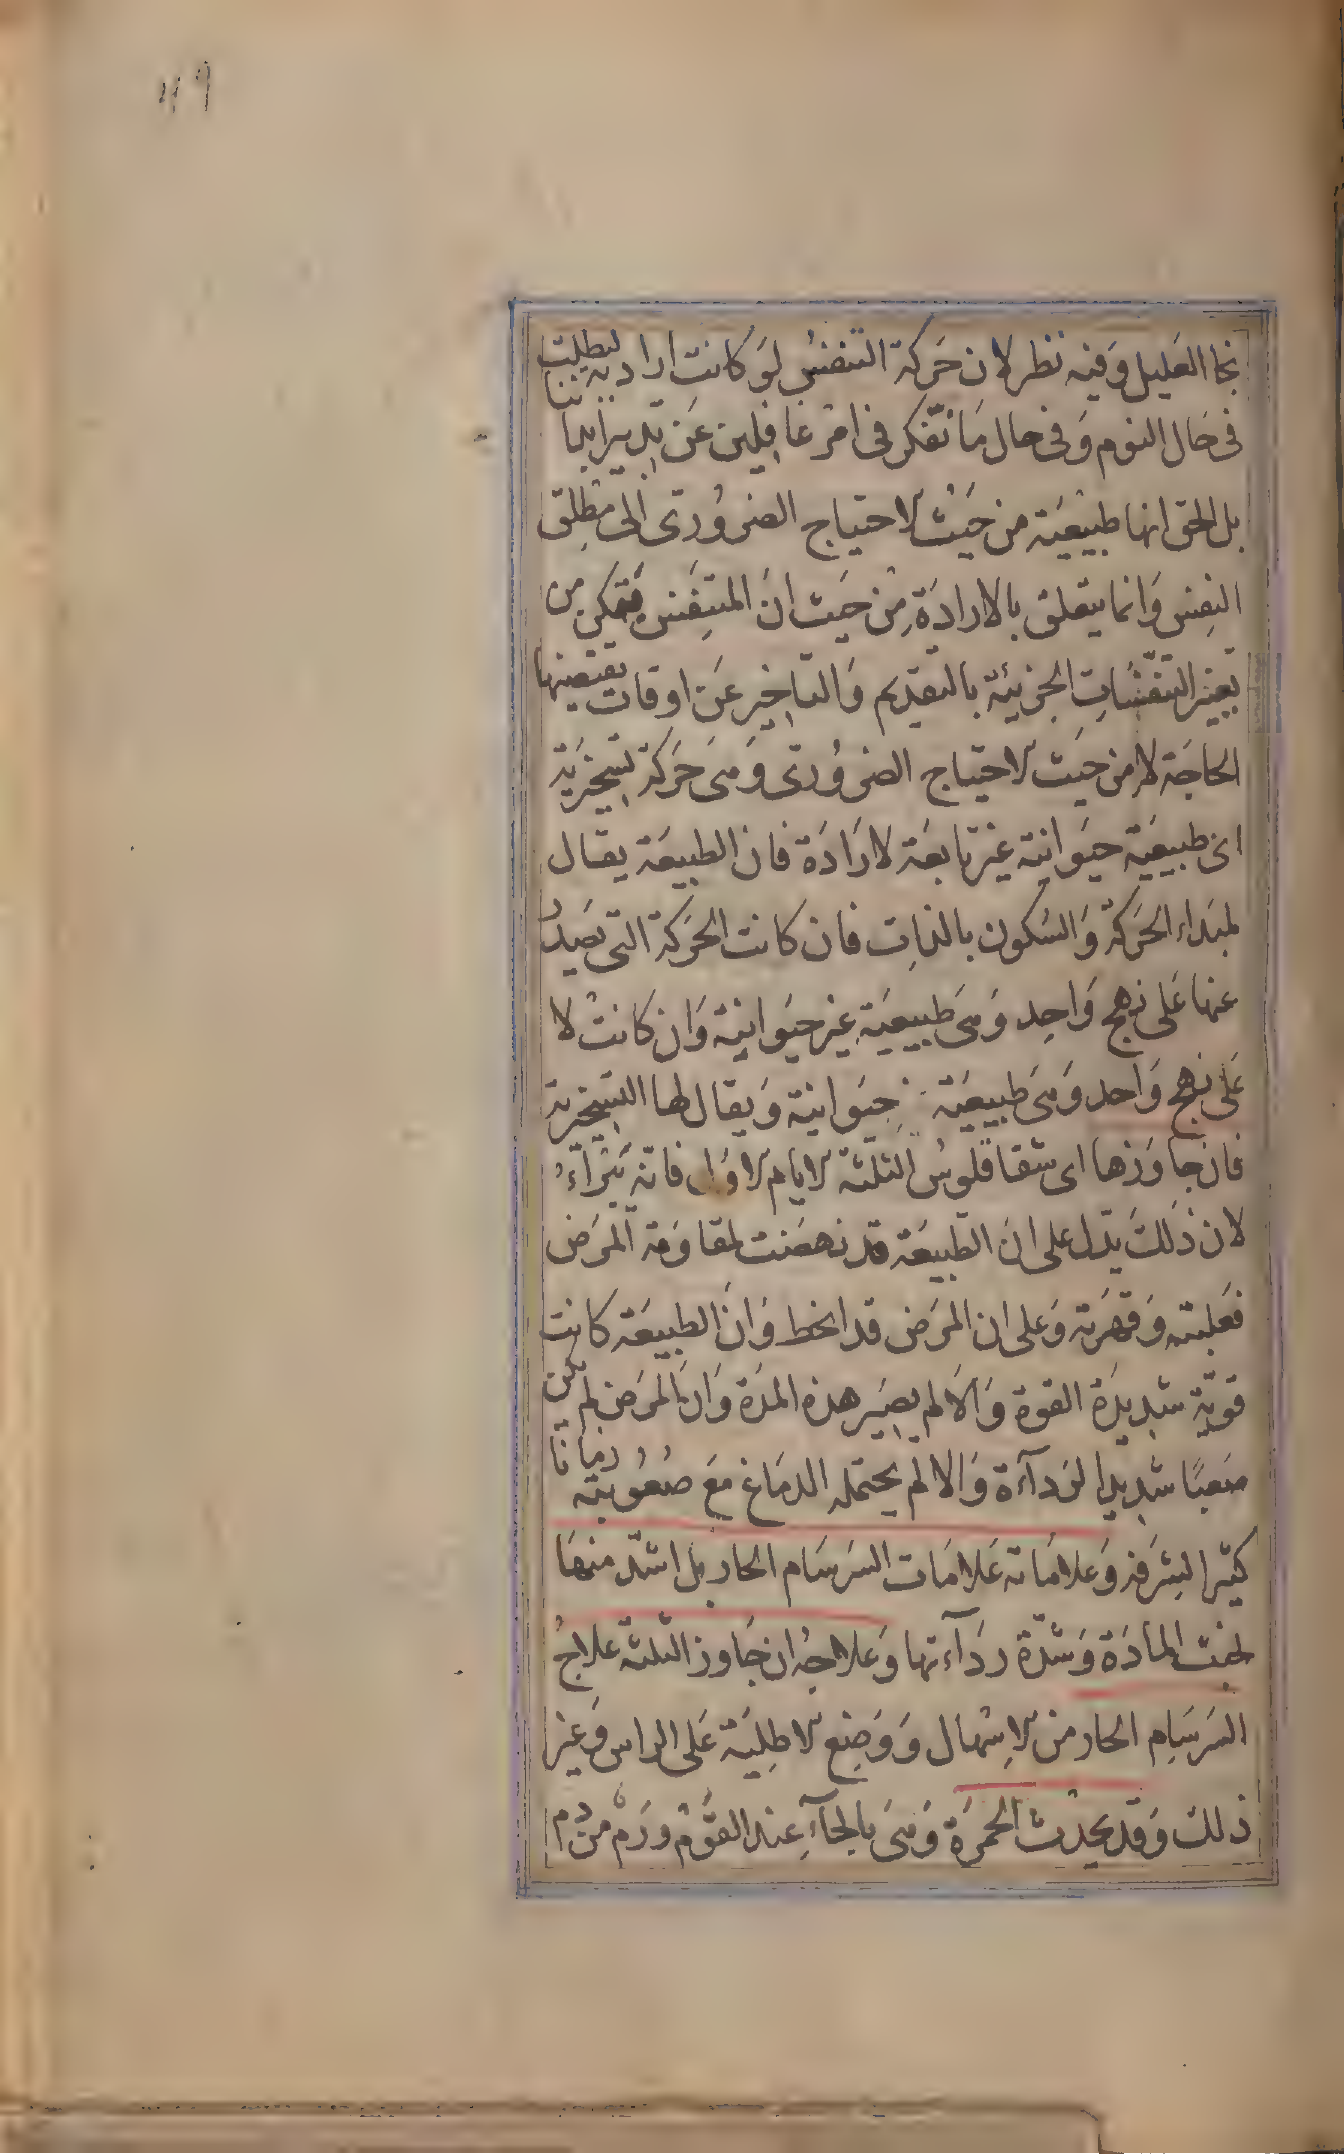 119
نجا العليل وفيه نظر لان حركة التنفس لو كانت ارادية لبطلت
فى حال النوم وفى حال ما نتفكر فى امر غافلين عن تدبير ابداننا
بل الحق انها طبيعية من حيث الاحتياج الضرورى الى مطلق
النفس وانما يتعلق بالارادة من حيث ان المتنفس متمكن من
تغيير التنفسات الجزئية بالتقديم والتاخير عن اوقات تقتضيها
الحاجة لا من حيث الاحتياج الضرورى وهى حركة تسخيرية
اى طبيعية حيوانية غير تابعة لارادة فان الطبيعة يقال
لمبداء الحركة والسكون بالذات فان كانت الحركة التى تصدر
عنها على نهج واحد وهى طبيعية غير حيوانية وان كانت لا
على نهج واحد وهى طبيعية حيوانية ويقال لها التسخيرية
فان جاوزها اى شقاقلوس الثلثة الايام الاول فانه يبرآء
لان ذلك يدل على ان الطبيعة قد نهضت لمقاومة المرض
فغلبته وقهرته وعلى ان المرض قد انحط وان الطبيعة كانت
قوية شديدة القوة والا لم يصبر هذه المدة وان المرض لم يكن
صعبا شديد الردآءة والا لم يحتمله الدماغ مع صعوبته زمانا
كثيرا لشرفه وعلاماته علامات السرسام الحار بل اشد منها
لخبث المادة وشدة ردآءتها وعلاجه ان جاوز الثلثة علاج
السرسام الحار من الاسهال ووضع الاطلية على الراس وغير
ذلك وقد يحدث الحمرة وهى بالحآء عند القوم ورم من دم